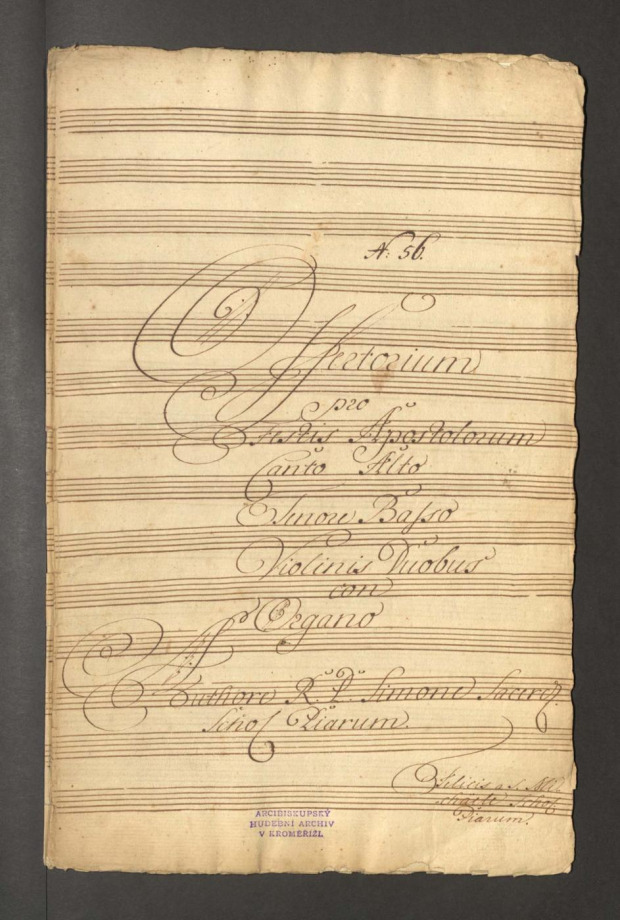 N: 56.
Offertorium
pro
Festis Apostolorum
Canto Alto
Tenore Basso
Violinis Duobus
con
Organo
Authore R. P. Simone Sacerd.
Schol Piarum.
Felicis a S. Mi-
chaele Schol.
Piarum.
ARCIBISKUPSKÝ
HUDEBNÍ ARCHIV
V KROMĚŘÍŽI.